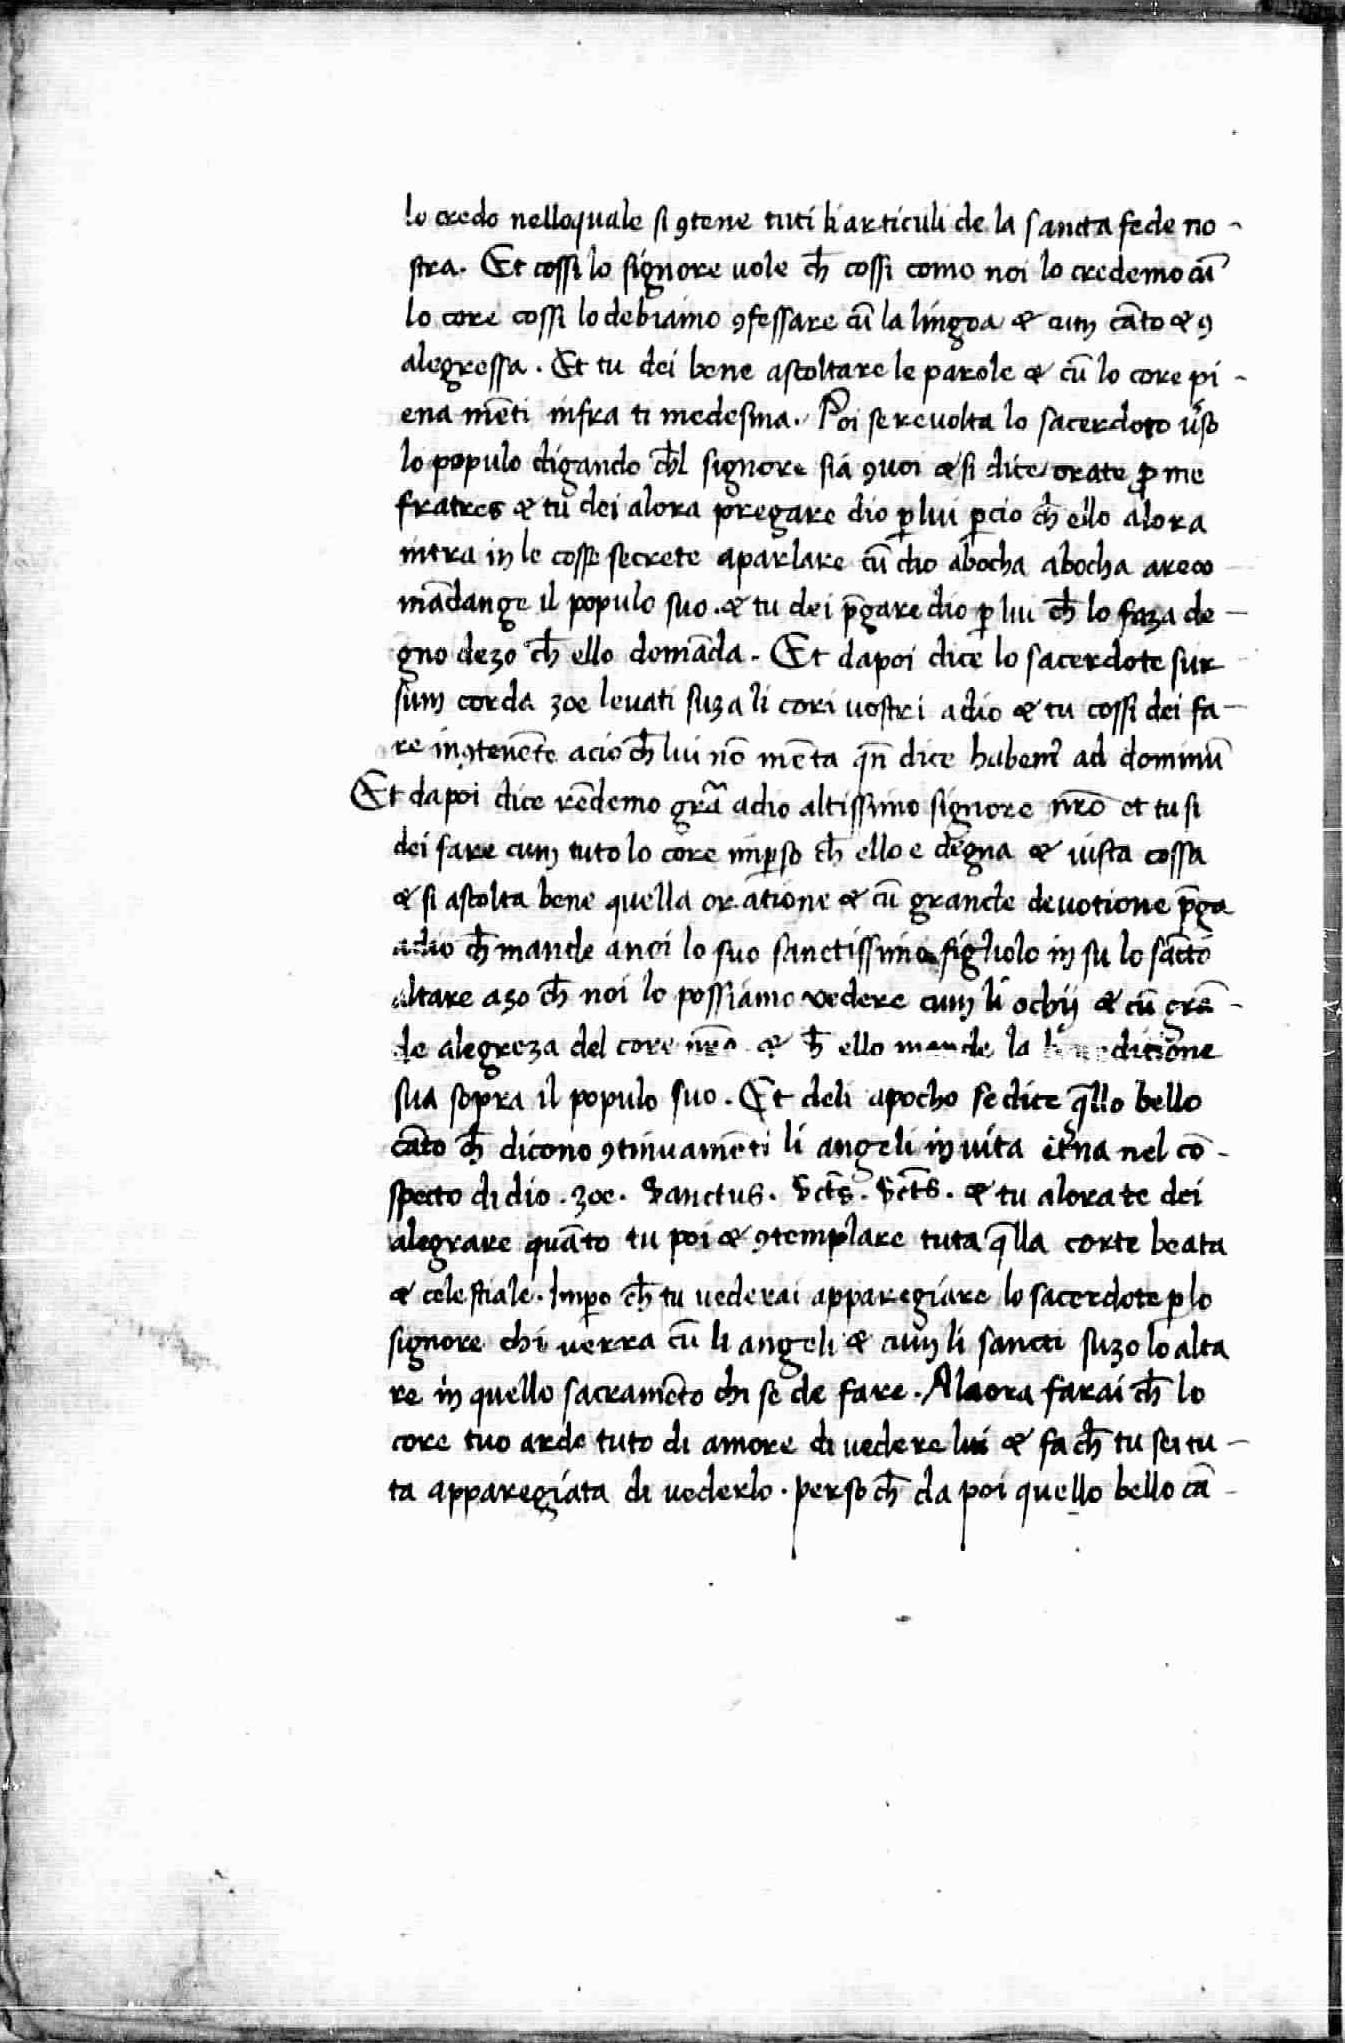 lo credo nelloquale si ꝯtene tuti li articuli de la sancta fede no-
stra. Et cossi lo signore uole ch̄ cossi como noi lo credemo cū
lo core cossi lo debiamo ꝯfessare cū la lingoa & cum cāto & ꝯ
alegressa. Et tu dei bene ascoltare le parole & cū lo core pi-
ena mēti infra ti medesma. Poi se reuolta lo sacerdoto ūso
lo populo digando ch̄l signore sia ꝯuoi & si dice orate ꝓ me
fratres & tu dei alora pregare dio ꝑ lui ꝑcio ch̄ ello alora
intra in le cosse secrete a parlare cū dio abocha abocha areco
mādange il populo suo. & tu dei p̄gare dio ꝑ lui ch̄ lo faza de-
gno dezo ch̄ ello domāda. Et dapoi dice lo sacerdote sur
sum corda zoe leuati suza li cori uostri adio & tu cossi dei fa-
re inꝯtenēte acio ch̄ lui nō mēta qn̄ dice habem̄ ad dominū
Et dapoi dice rēdemo gr̄a adio altissimo signore nr̄o et tu si
dei fare cum tuto lo core imꝑso ch̄ ello e degna & iusta cossa
& si ascolta bene quella oratione & cū grande deuotione p̄ga
adio ch̄ mande anoi lo suo sanctissimo figliolo in su lo sāctō
altare azo ch̄ noi lo possiamo vedere cum li ochij & cū grā-
de alegreza del core nr̄o & ch̄ ello mande la benedictione
sua sopra il populo suo. Et deli apocho se dice q̄llo bello
cāto ch̄ dicono ꝯtinuamēti li angeli in uita et̄na nel cō-
specto di dio. zoe. Sanctus. Sct̄s. Sct̄s. & tu alora te dei
alegrare quāto tu poi & ꝯtemplare tuta q̄lla corte beata
& celestiale. Imꝑo ch̄ tu uederai apparegiare lo sacerdote ꝑ lo
signore chi uerra cū li angeli & cum li sancti suzo lo alta
re in quello sacramēto chi se de fare. Alaora farai ch̄ lo
core tuo arde tuto di amore di uedere lui & fa ch̄ tu sei tu-
ta apparegiata di uederlo. perso ch̄ da poi quello bello cā-